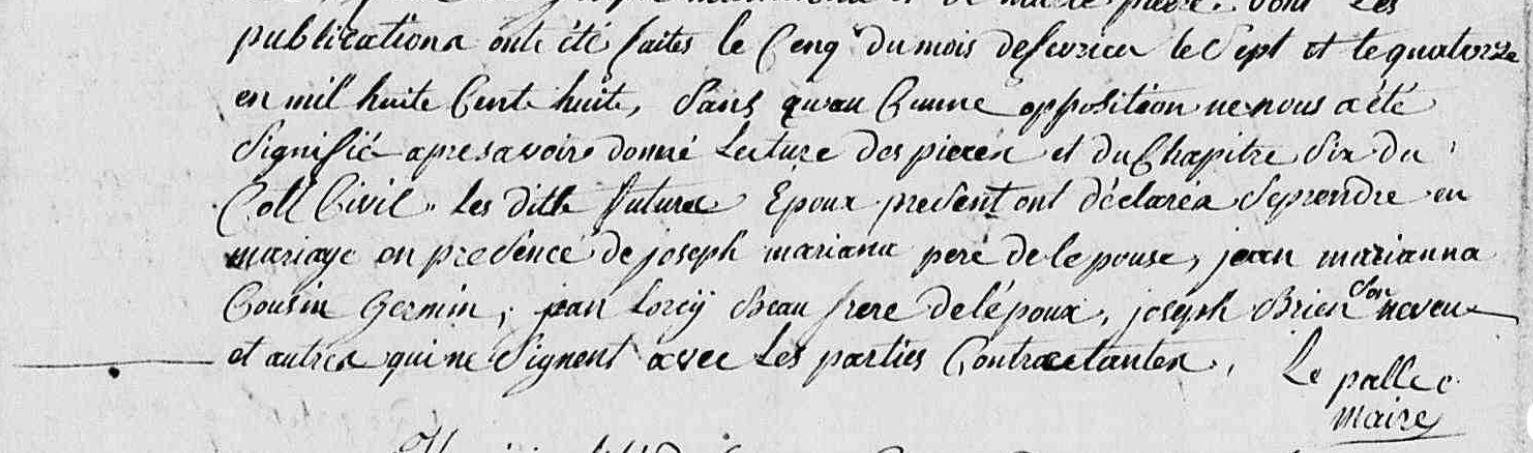 publications onte été faites le Cenq du mois defevrier le Sept et le quatorze
en mil huite Cent huite, Sans quau Cunne opposition ne nous a été
Signifié apres avoir donné Lecture des pieces et du Chapitre Six du
Code Civil. Les ditte futures Epoux present ont déclarés Seprendre en
mariage en presence de joseph marianna pere de lepouse, jean marianna
Cousin Germin, jean Lorcÿ Beau frere de lépoux, joseph Brien son neveu
et autres qui ne Signent avec Les parties Contractantes,
Le pallec
maire